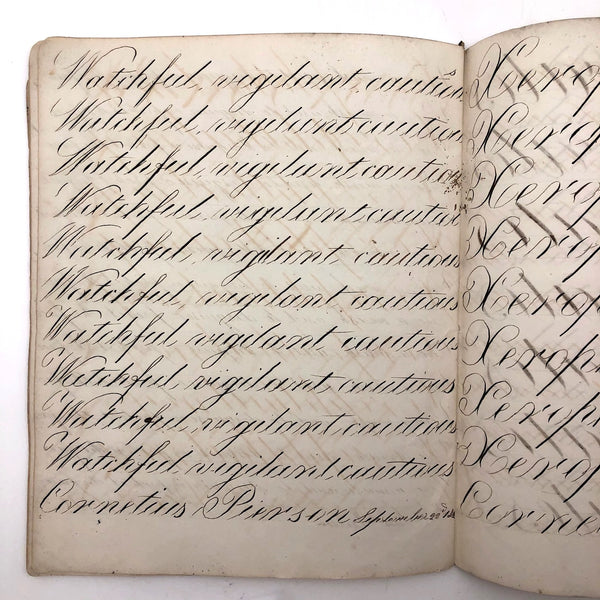 Watchful, vigilant, cautious
Watchful, vigilant, cautious
Watchful, vigilant, cautious
Watchful, vigilant, cautious
Watchful, vigilant, cautious
Watchful, vigilant, cautious
Watchful, vigilant cautious
Watchful, vigilant, cautious
Watchful, vigilant, cautious
Watchful, vigilant, cautious
Cornelius Pierson September 22nd
Xerop
Xerop
Xerop
Xerop
Xerop
Xerop
Xeroph
Xeroph
Xerop
Corne